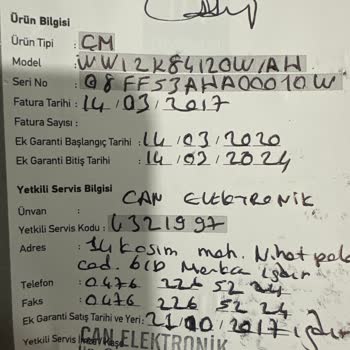 Ürün Bilgisi
Ürün Tipi : ÇM
Model : WW12K84120W/AH
Seri No : 08FF53AHA00010W
Fatura Tarihi : 14/03/2017
Fatura Sayısı :
Ek Garanti Başlangıç Tarihi : 14/03/2020
Ek Garanti Bitiş Tarihi : 14/02/2024
Yetkili Servis Bilgisi
CAN ELEKTRONİK
Ünvan :
Yetkili Servis Kodu : 4321997
Adres : 14 Kasım mah. Nihat
cad. 61D Merkez Iğdır
Telefon : 0.476 226 52 24
Faks : 0.476 226 52 24
Ek Garanti Satış Tarihi ve Yeri : 21/10/2017 Iğdır
Yetkili Servis
CAN ELEKTRONİK